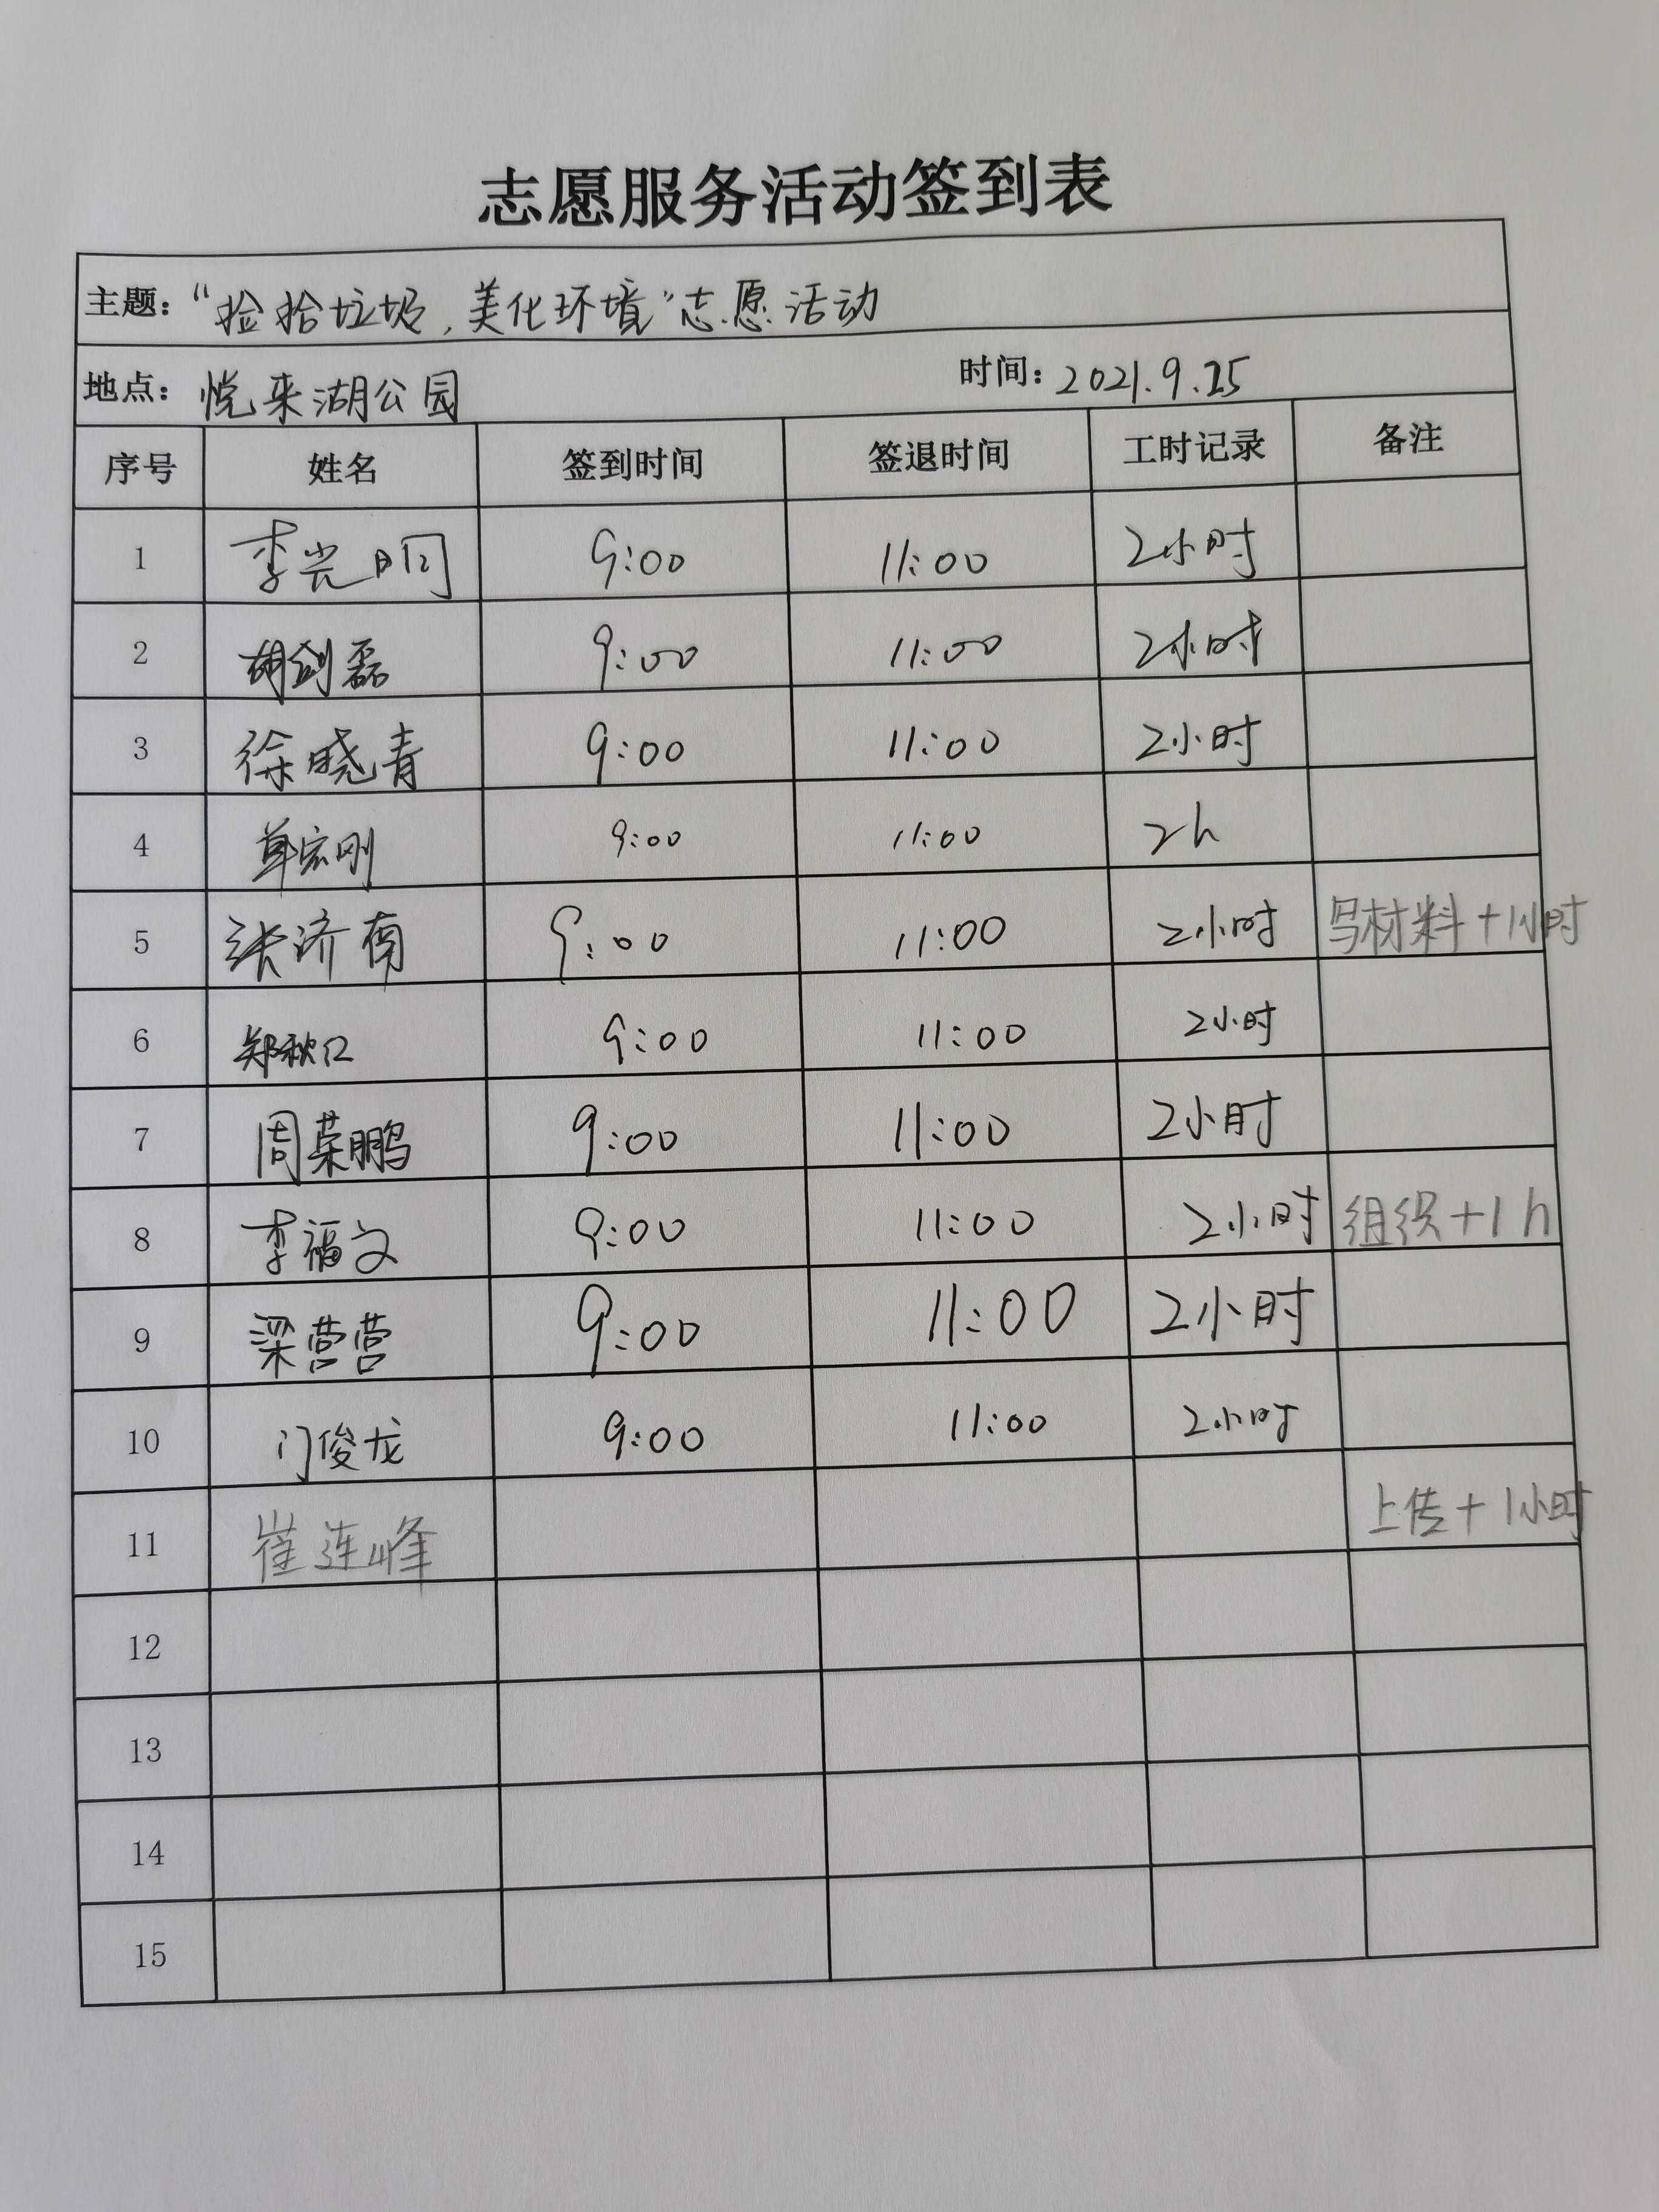 志愿服务活动签到表
主题：“捡拾垃圾，美化环境”志愿活动
地点：悦来湖公园 时间：2021.9.25
序号 姓名 签到时间 签退时间 工时记录 备注
1 李光明 9:00 11:00 2小时
2 胡剑磊 9:00 11:00 2小时
3 徐晓青 9:00 11:00 2小时
4 宏刚 9:00 11:00 2h
5 张济南 9:00 11:00 2小时 写材料+1小时
6 郑秋红 9:00 11:00 2小时
7 周荣鹏 9:00 11:00 2小时
8 李福文 9:00 11:00 2小时 组织+1h
9 梁营营 9:00 11:00 2小时
10 门俊龙 9:00 11:00 2小时
11 崔连峰 上传+1小时
12
13
14
15